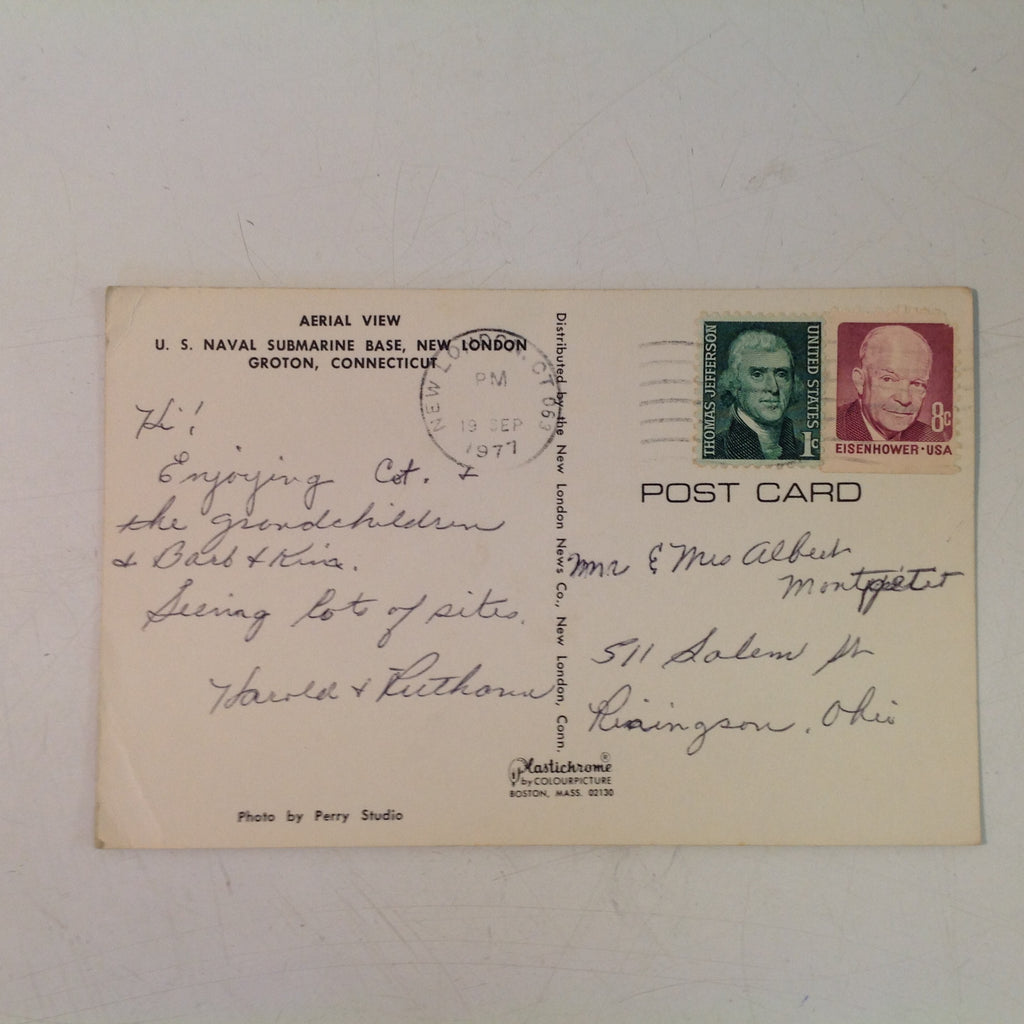 AERIAL VIEW
U. S. NAVAL SUBMARINE BASE, NEW LONDON
GROTON, CONNECTICUT
Hi!
Enjoying Cot. &
the grandchildren
& Barb &
Seeing lots of sites.
Harold & Ruthann
Photo by Perry Studio
NEW LONDON, CT 063
PM
19 SEP
1977
Distributed by the New London News Co., New London, Conn.
Plastichrome®
by COLOURPICTURE
BOSTON, MASS. 02130
THOMAS JEFFERSON
UNITED STATES
1c
8c
EISENHOWER·USA
POST CARD
Mr & Mrs Albert
511 Salem St
Risingson, Ohio